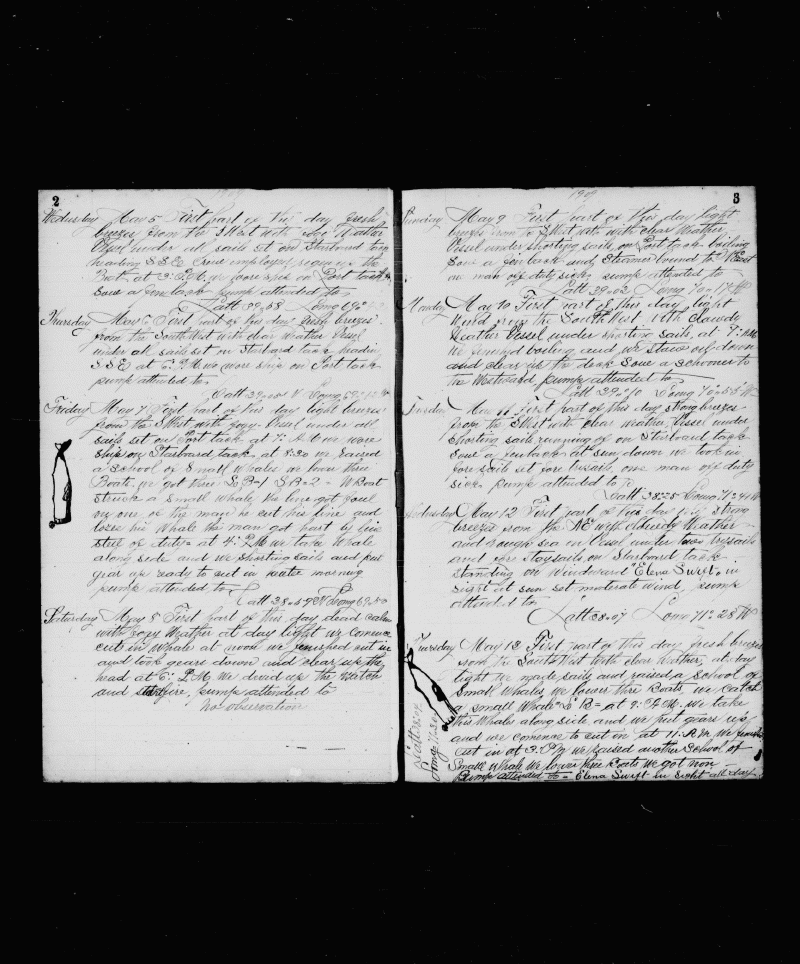 2
1909
Wednesday May 5 First part of this day fresh
breezes from the S West with Weather
Vessel under all sails set on Starboard tack
heading S.S.E. Crew employed repairing the
Boat. at 3: P.M. we wore ship on Port tack
Saw a finback pump attended to
Latt 39-58 Long 69
Thursday May 6 First part of this day fresh breezes
from the South West with clear Weather Vessel
under all sails set on Starbord tack heading
S.S.E at 6: P.M. we wore ship on Port tack
pump attended to
Latt N Long 69
Friday May 7 First part of this day light breezes
from the S West with fogy Vessel under all
sails set on Port tack at 7: A.M we wore
ship on Starboard tack = at 8:30 we raised
a school of Small Whales we lower three
Boats, we got three S.B=1 L.B=2 = W Boat
struck a Small Whale, the line got foul
on one of the man he cut his line and
loses his Whale the man got hart by fise
stell of duty = at 4: P.M we take Whale
along side and we shorting sails and put
gear up ready to cut in = morning
pump attended to
Latt 38-57 N Long 69-50
Saturday May 8 First part of this day dead calm
with fogy Weather at day light we comence
cut in Whale at noon we finished cut in
and took gears down and clear up the
head at 6: P.M. We dried up the Watch
and start fire, pump attended to
no observation
3
1909
Sunday May 9 First part of this day light
breezes from to S West with clear Weather
Vessel under shorting sails on Port tack boiling
Saw a finback and Steamer bound to West
on man off duty sick pump attended to
Latt 39-02 Long 70-17 W
Monday May 10 First part of this day light
Wind from the South West with clawdy
Weather Vessel under shorting sails, at 7: A.M
We finished boiling and we stow oil down
and clear up the deck Saw a schooner to
the Westward, pump attended to
Latt 39-10 Long 70-55 W
Tuesday May 11 First part of this day strong breezes
from the S West with clear weather, Vessel under
shorting sails running of on Starboard tack
Saw a finback at sun down we took in
fore sails set fore trysails, one man off duty
sick pump attended to
Latt 38-25 Long 71-41 W
Wednesday May 12 First part of this day strong
breezes from the NE with clawdy Weather
and Rough sea on Vessel under two trysails
and fore Staysails, on Starboard tack
standing on Windward "Elena Swift, in
sight at sun set moderate wind, pump
attended to
Latt 38-07 Long 71-28 W
Thursday May 13 First part of this day fresh breezes
from the South West with clear Weather, at day
light we made sails and raised a school of
Small Whales, we lower three Boats, we catch
a small Whale = L B = at 9: A.M. we take
this Whales along side and we put gears up
and we comence to cut in at 11: A.M. We finish
cut in at 3: P.M we raised another School of
Small Whale We lower three Boats We got non
Pump attended to = Elena Swift in sight all day
Latt 38-04
Long 71-30